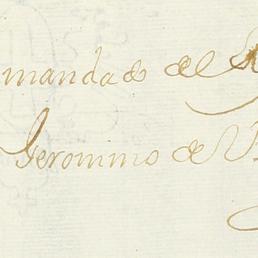 mandado del
Geronimo de